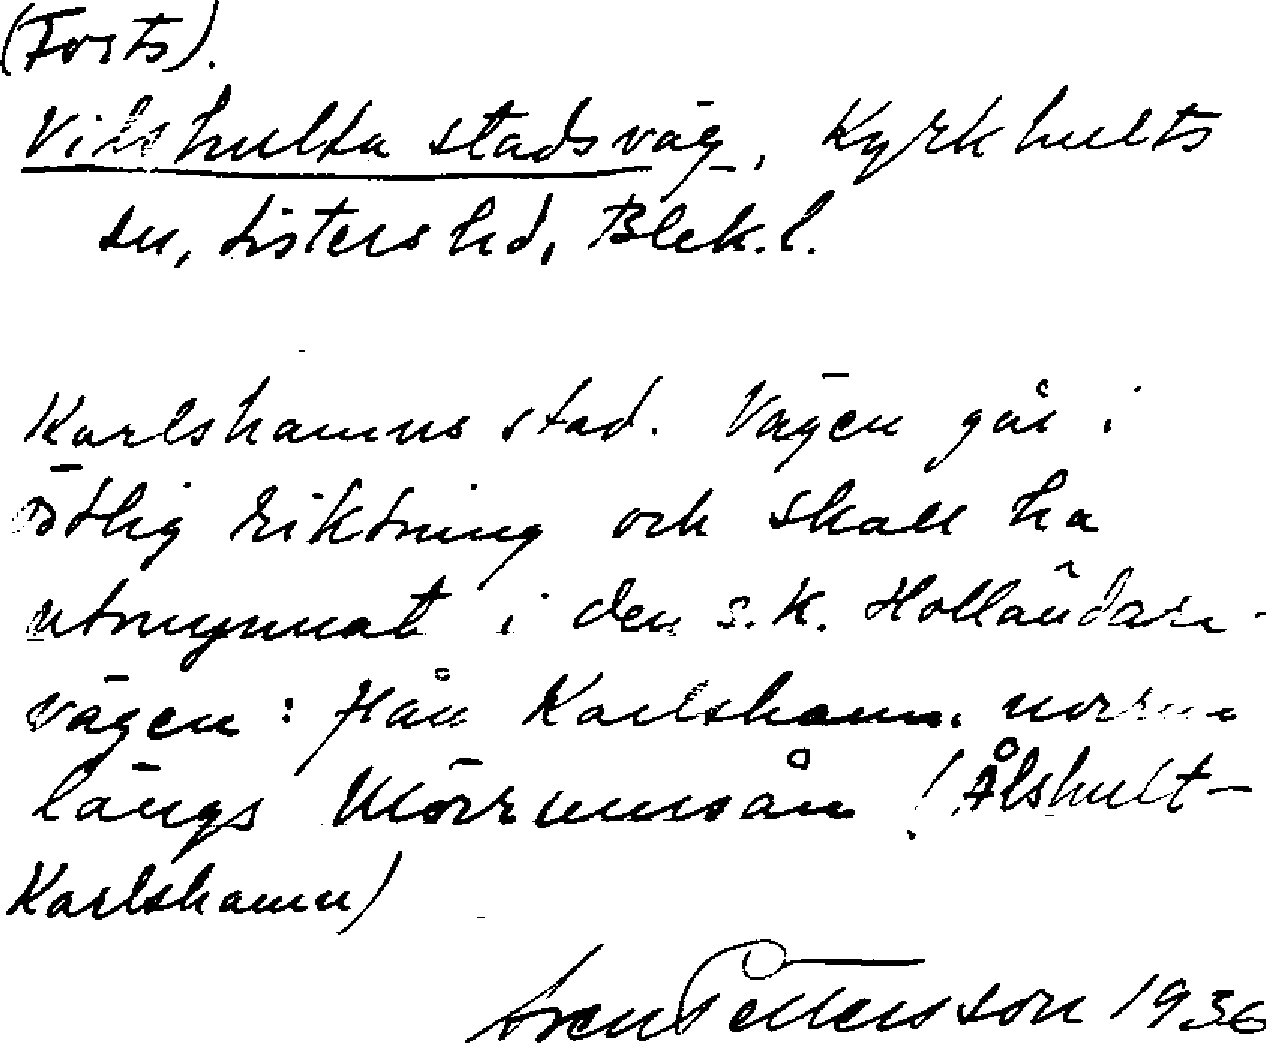 (Forts).
Vilshulta stadsväg, Kyrkhults
sn, Listers hd, Blek.l.
Karlshamns stad. Vägen går i
östlig riktning och skall ha
utmynnat i den s.k. Holländare-
vägen: från Karlshamn norrut
längs Mörrumsån (Ålshult-
Karlshamn)
Sven Pettersson 1936